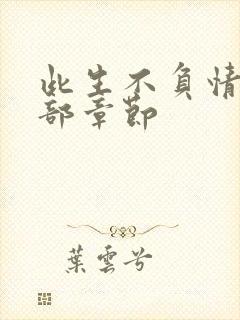 此生不負情
部章節
葉雲兮